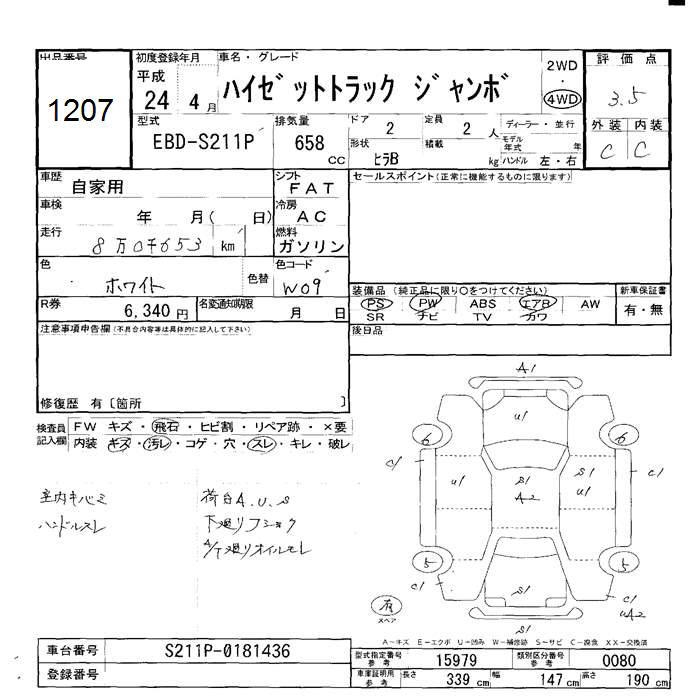 出品番号 初度登録年月 車名・グレード 2WD 評価点
1207 平成 24 4月 ハイゼットトラック ジャンボ ・ 4WD 3.5
型式 排気量 ドア 定員 ディーラー・並行 外装 内装
EBD-S211P 658 cc 2 2人 モデル年式 年 C C
形状 積載 ヒラB kg ハンドル 左・右
車歴 自家用 シフト FAT セールスポイント(正常に機能するものに限ります)
車検 年 月( 日) 冷房 AC
走行 km 燃料 ガソリン
色 ホワイト 色替 色コード W09
装備品(純正品に限り○をつけてください) 新車保証書
R券 6,340円 名変通知期限 月 日 PS PW ABS エアB AW 有・無
SR ナビ TV カワ
注意事項申告欄(不具合内容等は具体的に記入して下さい) 後日品
修復歴 有〔箇所 〕
検査員記入欄 FW キズ・飛石・ヒビ割・リペア跡・×要
内装 キズ・汚レ・コゲ・穴・スレ・キレ・破レ
室内キバミ 荷台A.U.S
ハンドルスレ 下廻りフショク
A/T廻りオイルモレ
A1
U1
6 6
C1 U1 S1 S1 C1
A2 U1
5 5
C1 S1 C1
有 UA2
スペア S1
A-キズ E-エクボ U-凹み W-補修跡 S-サビ C-腐食 XX-交換済
車台番号 S211P-0181436 型式指定番号 参考 15979 類別区分番号 参考 0080
登録番号 車庫証明用 参考 長さ 339 cm 幅 147 cm 高さ 190 cm